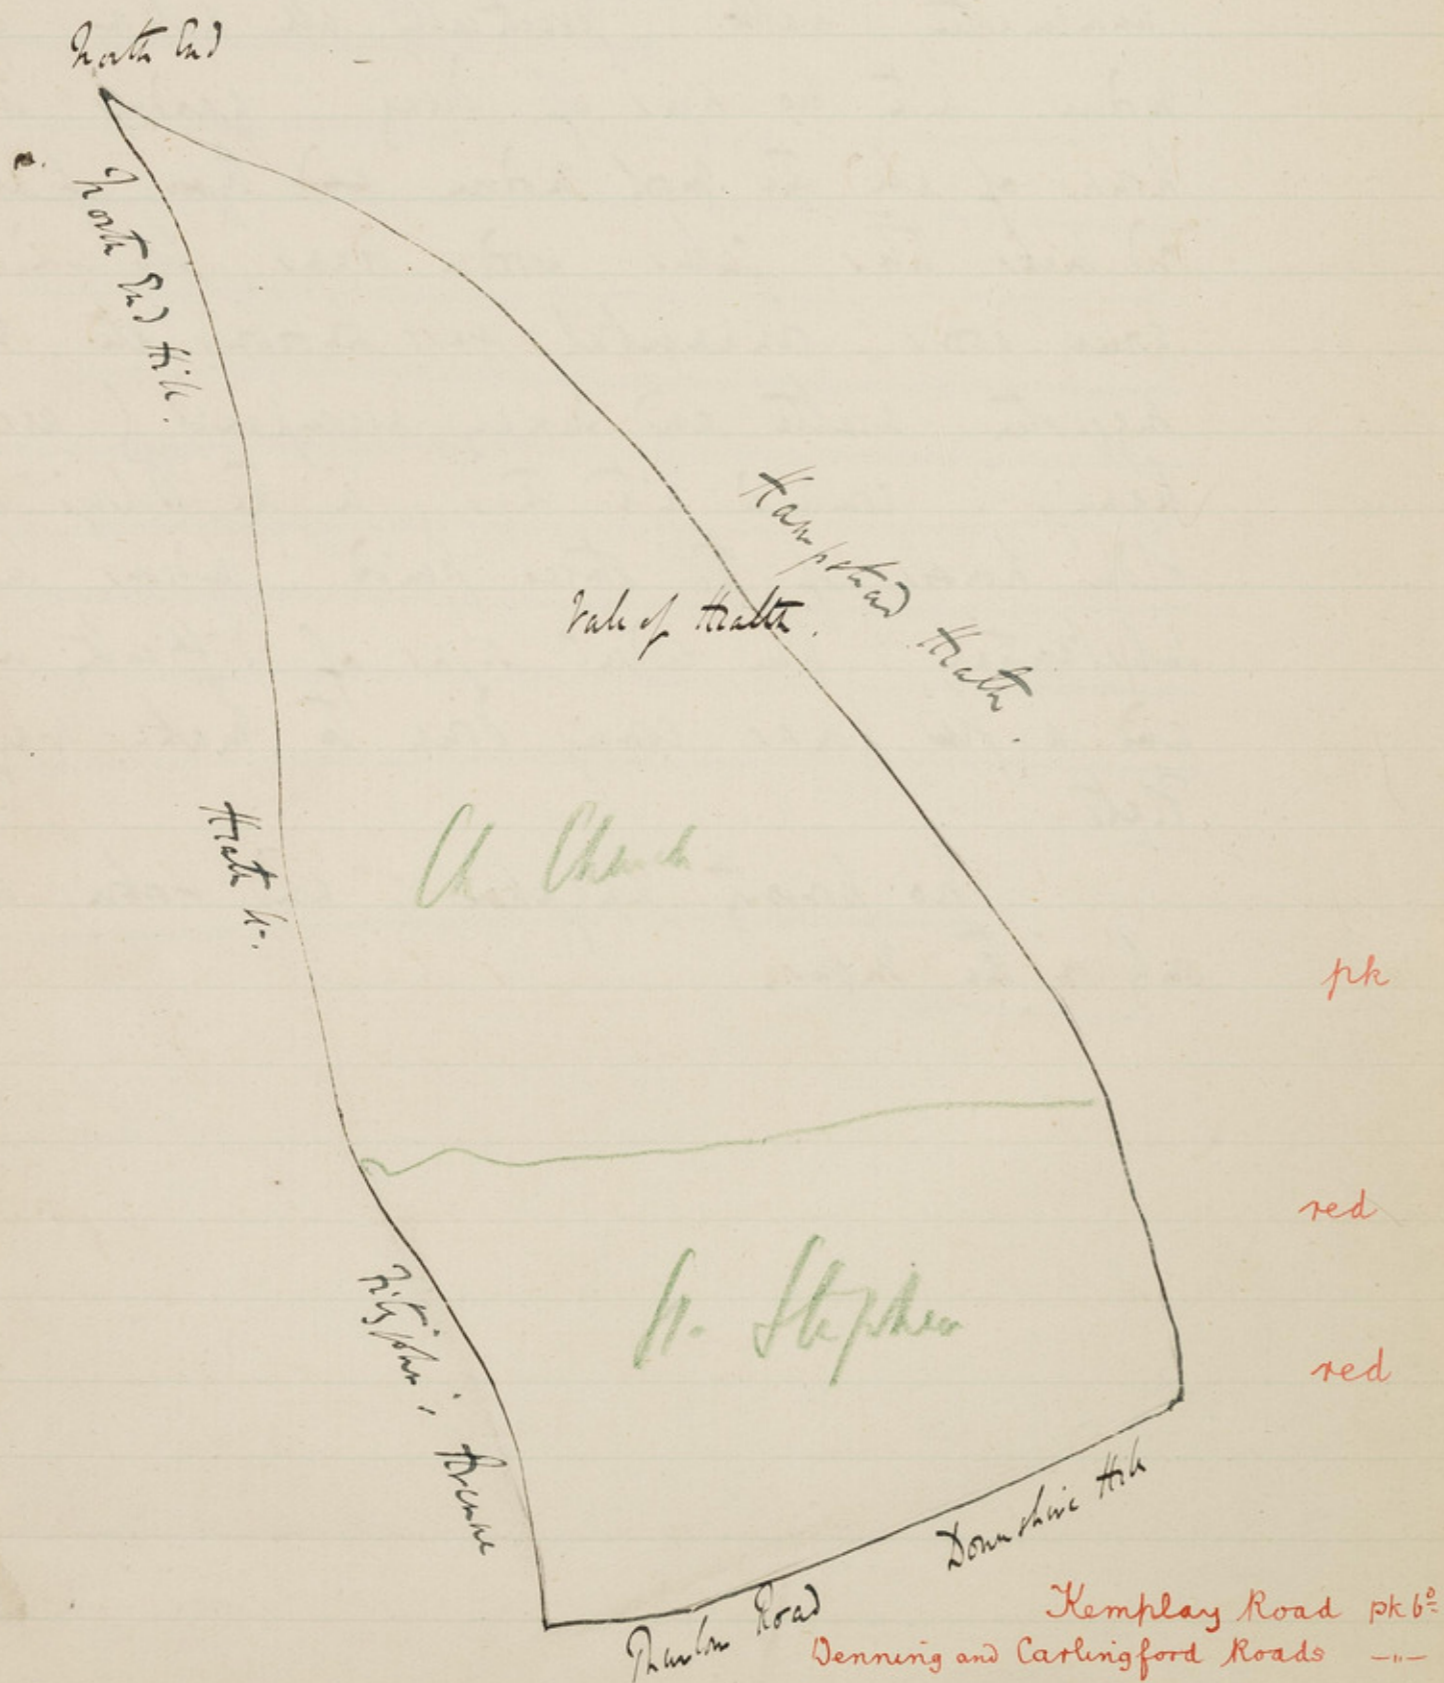 North End
North End Hill.
Hampstead Heath.
Vale of Health.
Heath St.
Ch Church
pk
red
St. Stephen
red
Fitzjohn's Avenue
Downshire Hill
Thurlow Road
Kemplay Road pk bo
Denning and Carlingford Roads —"—